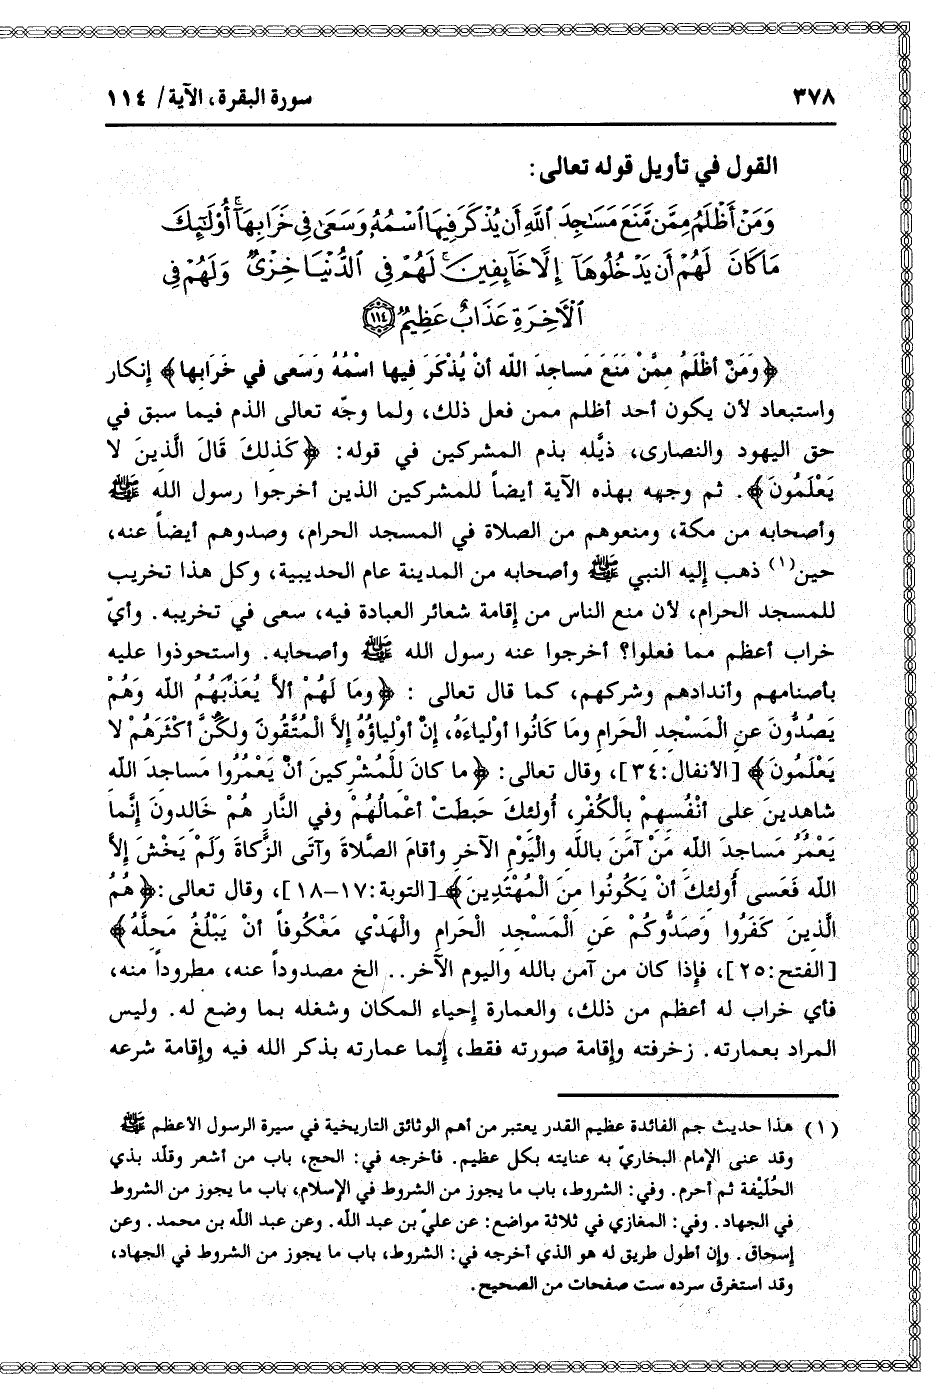 ٣٧٨ سورة البقرة، الآية/ ١١٤
القول في تأويل قوله تعالى:
وَمَنْ أَظْلَمُ مِمَّن مَّنَعَ مَسَاجِدَ ٱللَّهِ أَن يُذْكَرَ فِيهَا ٱسْمُهُۥ وَسَعَىٰ فِى خَرَابِهَآ ۚ أُو۟لَٰٓئِكَ
مَا كَانَ لَهُمْ أَن يَدْخُلُوهَآ إِلَّا خَآئِفِينَ ۚ لَهُمْ فِى ٱلدُّنْيَا خِزْىٌ وَلَهُمْ فِى
ٱلْأَخِرَةِ عَذَابٌ عَظِيمٌ ﴿١١٤﴾
﴿وَمَنْ أظْلَمُ مِمَّنْ مَنَعَ مَساجِدَ اللّه أنْ يُذْكَرَ فِيها اسْمُهُ وَسَعى في خَرَابِها﴾ إنكار
واستبعاد لأن يكون أحد أظلم ممن فعل ذلك، ولما وجّه تعالى الذم فيما سبق في
حق اليهود والنصارى، ذيَّله بذم المشركين في قوله: ﴿كَذلِكَ قَالَ الَّذِينَ لا
يَعْلَمُونَ﴾. ثم وجهه بهذه الآية أيضاً للمشركين الذين أخرجوا رسول الله ﷺ
وأصحابه من مكة، ومنعوهم من الصلاة في المسجد الحرام، وصدوهم أيضاً عنه،
حين(١) ذهب إليه النبي ﷺ وأصحابه من المدينة عام الحديبية، وكل هذا تخريب
للمسجد الحرام، لأن منع الناس من إقامة شعائر العبادة فيه، سعى في تخريبه. وأيّ
خراب أعظم مما فعلوا؟ أخرجوا عنه رسول الله ﷺ وأصحابه. واستحوذوا عليه
بأصنامهم وأندادهم وشركهم، كما قال تعالى : ﴿وما لَهُمْ ألاَّ يُعَذِّبَهُمُ اللّه وَهُمْ
يَصُدُّونَ عَنِ الْمَسْجِدِ الْحَرامِ وما كَانُوا أوْلياءَهُ، إنْ أوْلياؤُهُ إلاَّ الْمُتَّقُونَ ولكنَّ أكْثَرَهُمْ لا
يَعْلَمُونَ﴾ [الأنفال:٣٤]، وقال تعالى: ﴿ما كانَ لِلْمُشْرِكِينَ أنْ يَعْمُرُوا مَساجِدَ اللّه
شاهدينَ على أنْفُسِهِمْ بِالْكُفْرِ، أُولئكَ حَبِطَتْ أعْمالُهُمْ وفي النَّارِ هُمْ خَالدونَ إنَّما
يَعْمُرُ مَساجِدَ اللّه مَنْ آمَنَ باللّه والْيَوْمِ الآخر وأقامَ الصَّلاةَ وآتَى الزَّكاةَ ولَمْ يَخْشَ إلاَّ
اللّه فَعَسى أُولئكَ أنْ يَكُونُوا مِنَ الْمُهْتَدِينَ﴾ [التوبة:١٧-١٨]، وقال تعالى:﴿هُمُ
الَّذينَ كَفَرُوا وَصَدُّوكُمْ عَنِ الْمَسْجِد الْحَرامِ والْهَدْيِ مَعْكُوفاً أنْ يَبْلُغَ مَحِلَّهُ﴾
[الفتح:٢٥]، فإذا كان من آمن بالله واليوم الآخر.. الخ مصدوداً عنه، مطروداً منه،
فأي خراب له أعظم من ذلك، والعمارة إحياء المكان وشغله بما وضع له. وليس
المراد بعمارته. زخرفته وإقامة صورته فقط، إنما عمارته بذكر الله فيه وإقامة شرعه
(١) هذا حديث جم الفائدة عظيم القدر يعتبر من أهم الوثائق التاريخية في سيرة الرسول الأعظم ﷺ
وقد عنى الإمام البخاريّ به عنايته بكل عظيم. فأخرجه في: الحج، باب من أشعر وقلّد بذي
الحُلَيْفة ثم أحرم. وفي: الشروط، باب ما يجوز من الشروط في الإسلام، باب ما يجوز من الشروط
في الجهاد. وفي: المغازي في ثلاثة مواضع: عن عليّ بن عبد الله. وعن عبد الله بن محمد. وعن
إسحاق. وإن أطول طريق له هو الذي أخرجه في: الشروط، باب ما يجوز من الشروط في الجهاد،
وقد استغرق سرده ست صفحات من الصحيح.